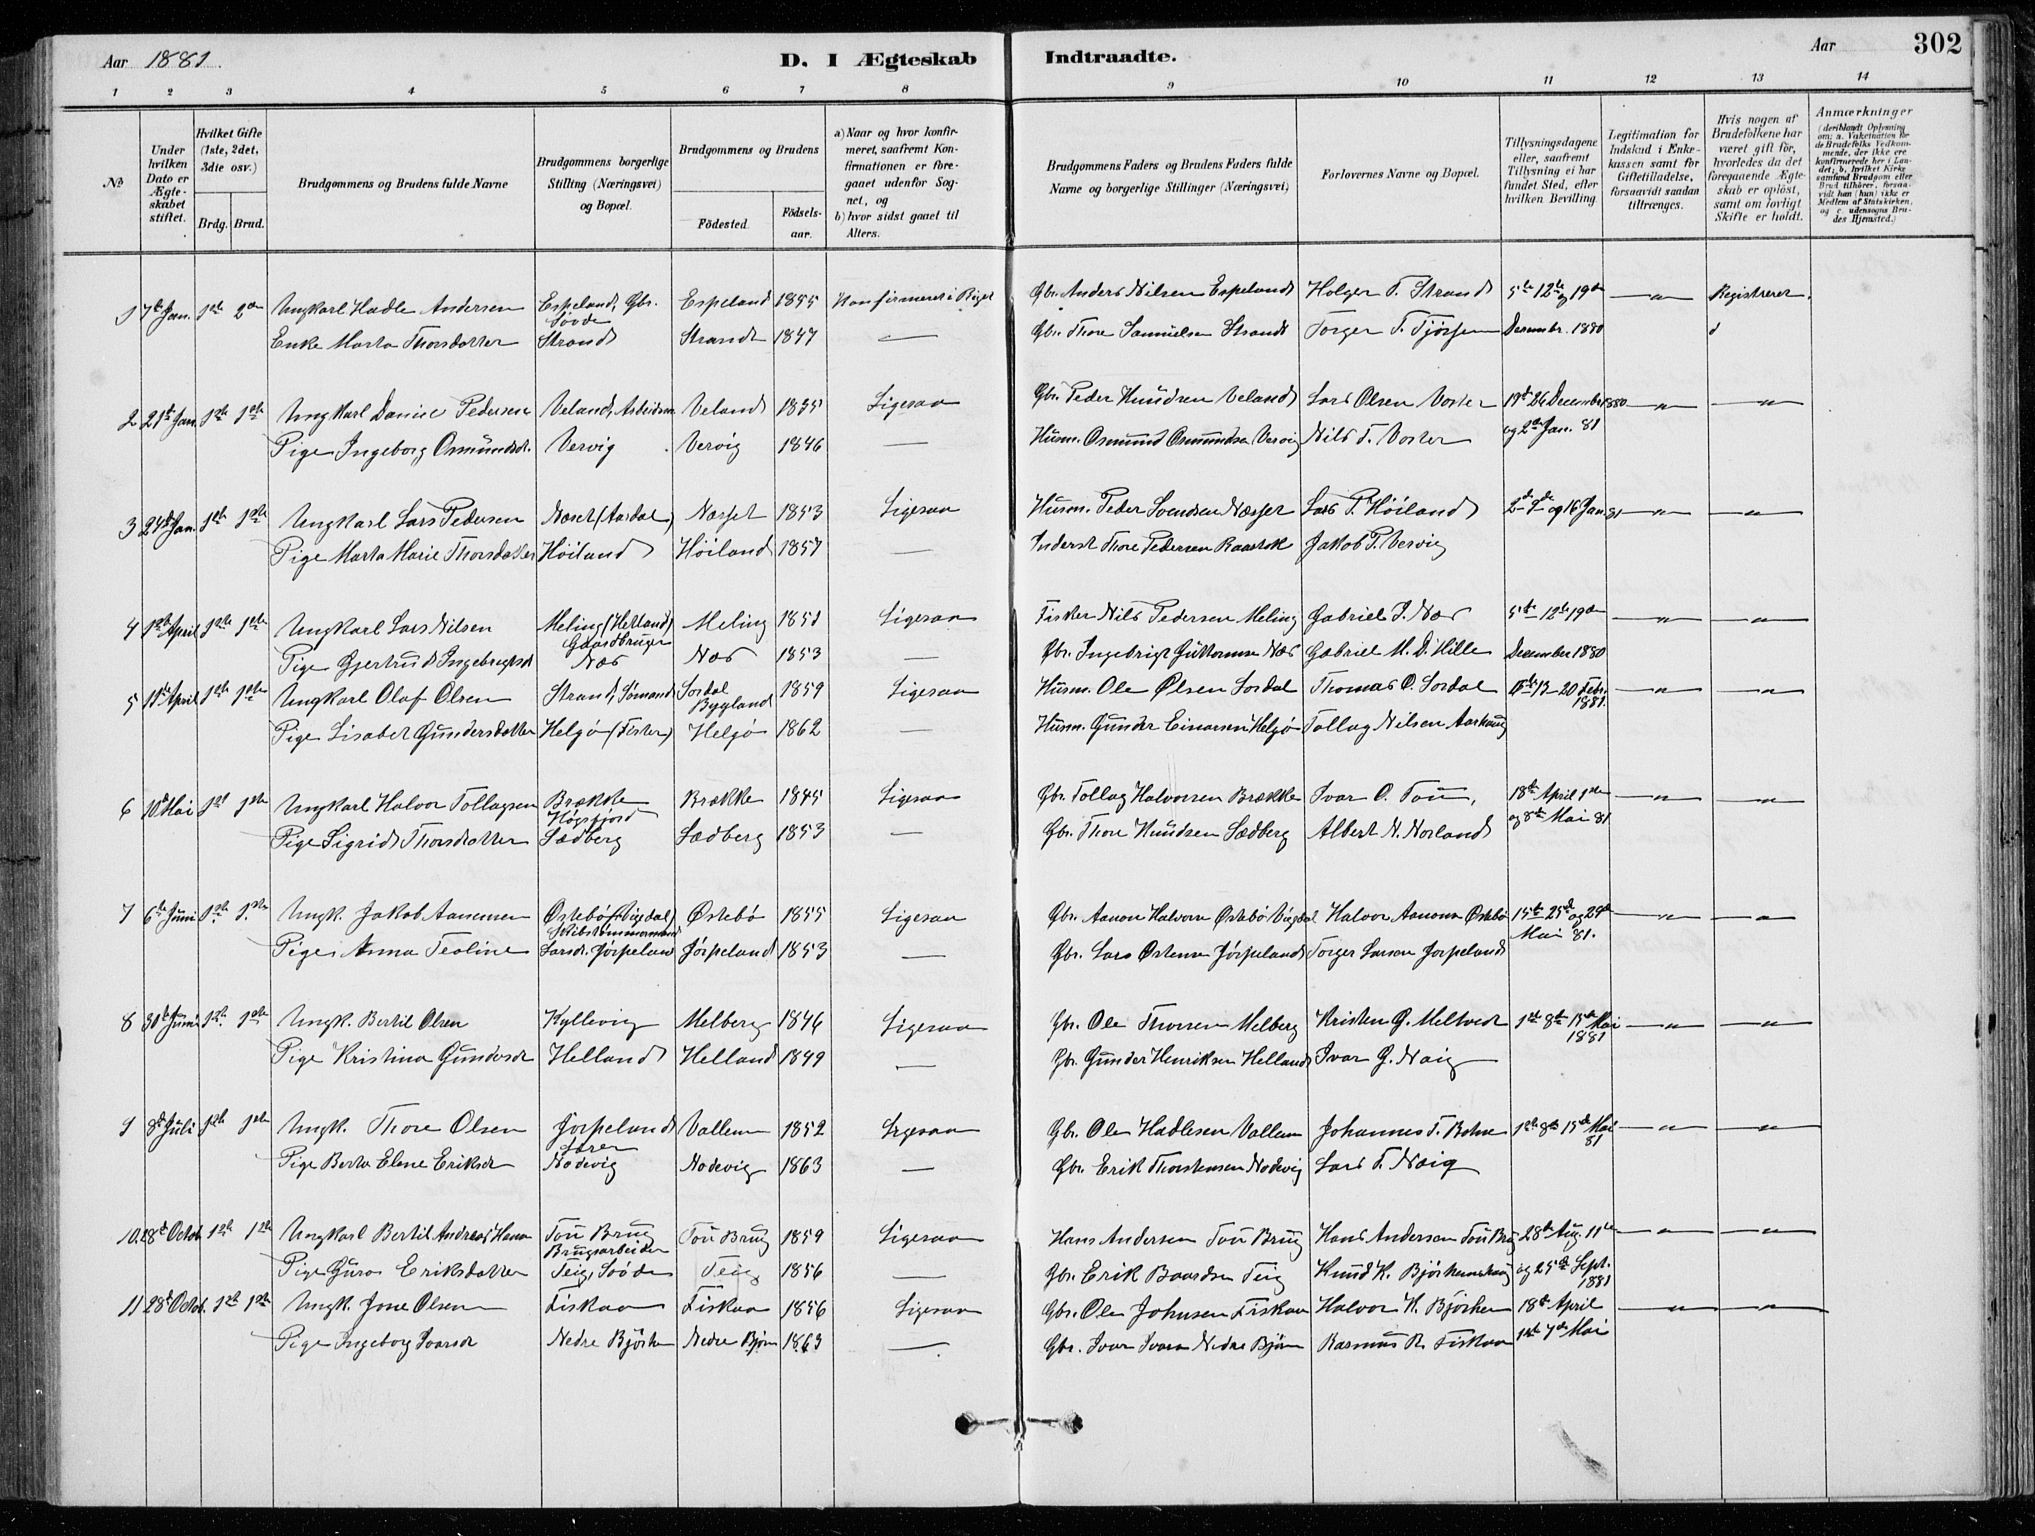 Aar 1881.
D. I Ægteskab Indtraadte.
Aar
302
1 2 3 4 5 6 7 8 9 10 11 12 13 14
No
Under hvilken Dato er Ægteskabet stiftet.
Hvilket Gifte (1ste, 2det, 3die osv.)
Brdg. Brud.
Brudgommens og Brudens fulde Navne
Brudgommens borgerlige Stilling (Næringsvei) og Bopæl.
Brudgommens og Brudens
Födested.
Födselsaar.
a) Naar og hvor konfirmeret, saafremt Konfirmationen er foregaaet udenfor Sognet, og
b) hvor sidst gaaet til Alters.
Brudgommens Faders og Brudens Faders fulde Navne og borgerlige Stillinger (Næringsvei)
Forlovernes Navne og Bopæl.
Tillysningsdagene eller, saafremt Tillysning ei har fundet Sted, efter hvilken Bevilling.
Legitimation for Indskud i Enkekassen samt for Giftetilladelse, forsaavidt saadan tiltrænges.
Hvis nogen af Brudefolkene har været gift för, hvorledes da det foregaaende Ægteskab er oplöst, samt om lovligt Skifte er holdt.
Anmærkninger (deriblandt Oplysning om; a. Vakcination for de Brudefolks Vedkommende, der ikke ere konfirmerede her i Landet; b. hvilket Kirkesamfund Brudgom eller Brud tilhörer, forsaavidt han (hun) ikke er Medlem af Statskirken, og c. udensogns Brudes Hjemsted.)
1 7de Jan. 1ste 2den Ungkarl Hadle Andersen Espeland, Gbr. Espeland 1855 Konfirmeret i Riget Gbr. Anders Nilsen Espeland Holger T. Strand 5te 12te og 19de —"— Registreret.
Enke Marta Thorsdatter Strand Strand 1847 — Gbr. Thore Samuelsen Strand Torger T. Tjössem Decembr. 1880
2 21de Jan. 1ste 1ste Ungkarl Daniel Pedersen Veland, Arbeidsm Veland 1835 Ligesaa Gbr. Peder Knudsen Veland Lars Olsen Voster 19de 26 December 1880 —"— —"—
Pige Ingeborg Osmundsd. Vervig Vervig 1846 — Husm. Osmund Osmundsen Vervig Nils T. Voster og 2den Jan. 81
3 24de Jan. 1ste 1ste Ungkarl Lars Pedersen Næset (Aardal) Næsset 1853 Ligesaa Husm. Peder Svendsen Næsset Lars P. Höiland 2den 9de og 16 Jan. 81 —"— —"—
Pige Marta Marie Thorsdatter Höiland Höiland 1857 — Inderst Thore Pedersen Jakob P. Vervig
4 1ste April 1ste 1ste Ungkarl Lars Nilsen Meling (Hetland) Gaardbruger Meling 1851 Ligesaa Fisker Nils Pedersen Meling Gabriel I. Næs 5te 12te 19de —"— —"—
Pige Gjertrud Ingebrigtsd Næs Næs 1853 — Gbr. Ingebrigt Guttormsen Næs Gabriel M. D. Hille December 1880
5 15de April 1ste 1ste Ungkarl Olaf Olsen Strand, Sömand Sordal Bygland 1859 Ligesaa Husm. Ole Olsen Sordal Thomas O. Sordal 6te 13 20 Febr. 1881 —"— —"—
Pige Lisabet Gundersdatter Helgö (Fister) Helgö 1862 — Husm. Gunder Einarsen Helgö Tollag Nilsen Aarhaug
6 10de Mai 1ste 1ste Ungkarl Halvor Tollagsen Brække Högsfjord Brække 1845 Ligesaa Gbr. Tollag Halvorsen Brække Ivar O. Tou, 18de April 1ste —"— —"—
Pige Sigrid Thorsdatter Sædberg Sædberg 1853 — Gbr. Thore Knudsen Sædberg Albert N. Norland og 8de Mai 81
7 6te Juni 1ste 1ste Ungk. Jakob Aanensen Östebö (Vigdal) Skibstømmermand Östebö 1855 Ligesaa Gbr. Aanon Halvorn Östebö Vigdal Halvor Aanons Östebö 15de 25de og 29de —"— —"—
Pige Anna Teoline Larsd. Jörpeland Jörpeland 1853 — Gbr. Lars Östensen Jörpeland Torger Larsen Jörpeland Mai 81.
8 30te Juni 1ste 1ste Ungk. Bertil Olsen Kyllevig Melberg 1846 Ligesaa Gbr. Ole Thorsen Melberg Kristen G. Meltveit 1ste 8de 15de Mai 1881 —"— —"—
Pige Kristina Gundersd Helland Helland 1849 — Gbr. Gunder Henriksen Helland Ivar G. Naig
9 8de Juli 1ste 1ste Ungk. Thore Olsen Jörpeland Vallem 1852 Ligesaa Gbr. Ole Hadlesen Vallem Johannes T. Botne 1ste 8de 15de Mai 81 —"— —"—
Pige Berta Elene Eriksd Nodevig Nodevig 1863 — Gbr. Erik Thorstensen Nodevig Lars T. Naig
10. 28de Octob. 1ste 1ste Ungkarl Bertil Andreas Hansen Tou Brug Brugsarbeider Tou Brug 1859 Ligesaa Hans Andersen Tou Brug Hans Andersen Tou Brug 28de Aug. 11te —"— —"—
Pige Guro Eriksdatter Teig, Sövde Teig 1856 — Gbr. Erik Baardsen Teig Knud K. Björheimshaug og 25de Sept. 1881
11 28de Octob. 1ste 1ste Ungk. Jone Olsen Fiskaa Fiskaa 1856 Ligesaa Gbr. Ole Johnsen Fiskaa Halvor K. Björhen 18de April —"— —"—
Pige Ingeborg Ivarsd Nedre Björhen Nedre Björn 1863 — Gbr. Ivar Ivarsn Nedre Björn Rasmus R. Fiskaa 1ste 7de Mai